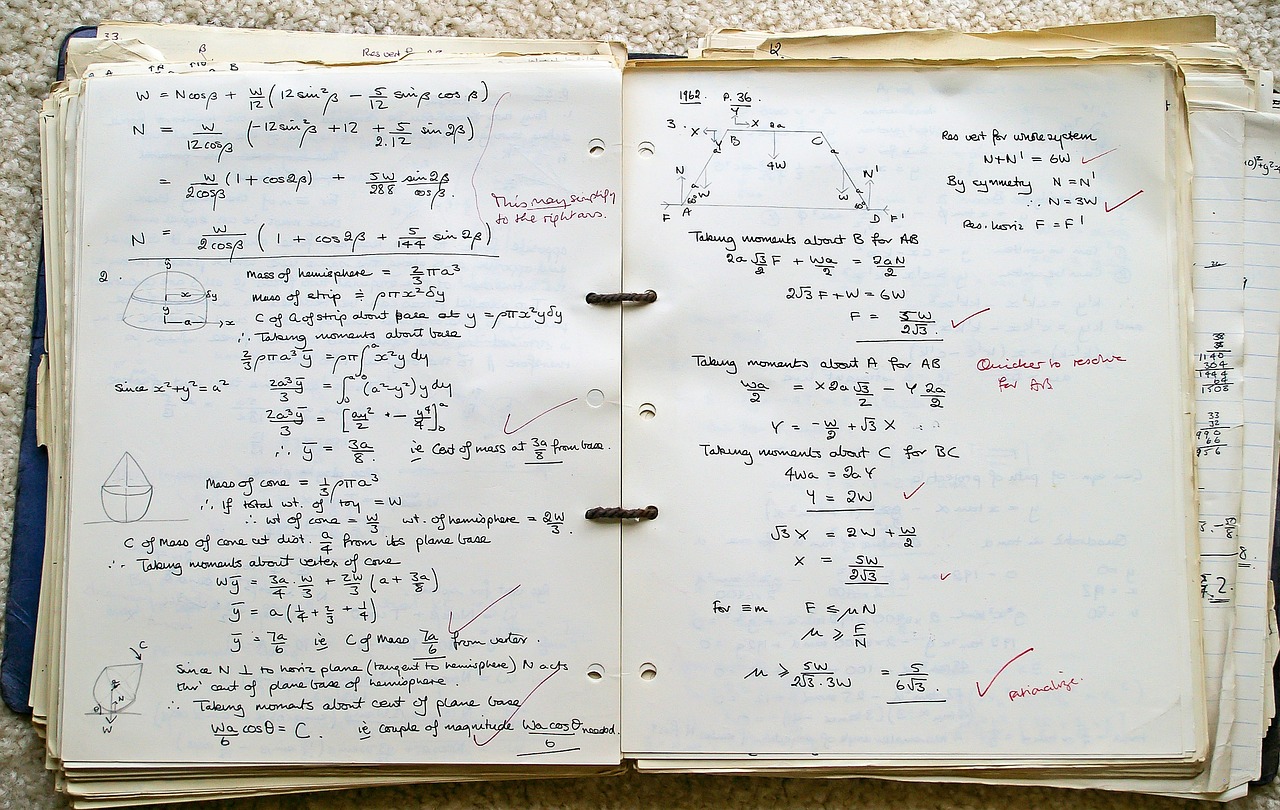 33.
β
Res vert
B
W = N cosβ + W/12 (12 sin²β − 5/12 sinβ cosβ)
N = W/12cosβ (−12 sin²β + 12 + 5/2.12 sin 2β)
= W/2cosβ (1 + cos2β) + 5W/288 sin2β/cosβ.
This may simplify
to the right ans.
N = W/2cosβ (1 + cos2β + 5/144 sin2β)
2.
y
x δy
y
a x
Mass of hemisphere = 2/3 πa³
Mass of strip ≑ ρπx²δy
C of G of strip about base at y = ρπx²yδy
∴ Taking moments about base
2/3 ρπa³ȳ = ρπ∫₀ᵃ x²y dy
Since x²+y² = a² 2a³ȳ/3 = ∫₀ᵃ (a²−y²) y dy
2a³ȳ/3 = [ay²/2 − y⁴/4]₀ᵃ
∴ ȳ = 3a/8 ie Cent of mass at 3a/8 from base.
Mass of cone = 1/3 ρπa³
∴ If total wt. of toy = W
∴ wt of cone = W/3 wt. of hemisphere = 2W/3.
C of Mass of cone at dist. a/4 from its plane base
∴ Taking moments about vertex of cone
Wȳ = 3a/4 . W/3 + 2W/3 (a + 3a/8)
ȳ = a(1/4 + 2/3 + 1/4)
ȳ = 7a/6 ie C of Mass 7a/6 from vertex.
C
N
θ
W
Since N ⊥ to horiz plane (tangent to hemisphere) N acts
thro' cent of plane base of hemisphere.
∴ Taking moments about cent of plane base
Wa/6 cosθ = C. ie couple of magnitude Wa cosθ/6 needed.
12.
1962. P. 36.
3. X Y X 2a
B C
Y a a
4W
N a W W a N'
60° 60°
F A D F'
Res vert for whole system
N+N' = 6W
By symmetry N = N'
∴ N = 3W
Res. horiz F = F'
Taking moments about B for AB
2a √3/2 F + Wa/2 = 2aN/2
2√3 F + W = 6W
F = 5W/2√3.
Taking moments about A for AB
Quicker to resolve
for AB
Wa/2 = X 2a √3/2 − Y 2a/2
Y = −W/2 + √3 X
Taking moments about C for BC
4Wa = 2aY
Y = 2W
√3 X = 2W + W/2
X = 5W/2√3
For ≡m F ≤ μN
μ ≥ F/N
μ ≥ 5W/2√3.3W = 5/6√3.
rationalize.
38
38
1140
304
1444
64
1508
33
32
990
66
956
8.
2.